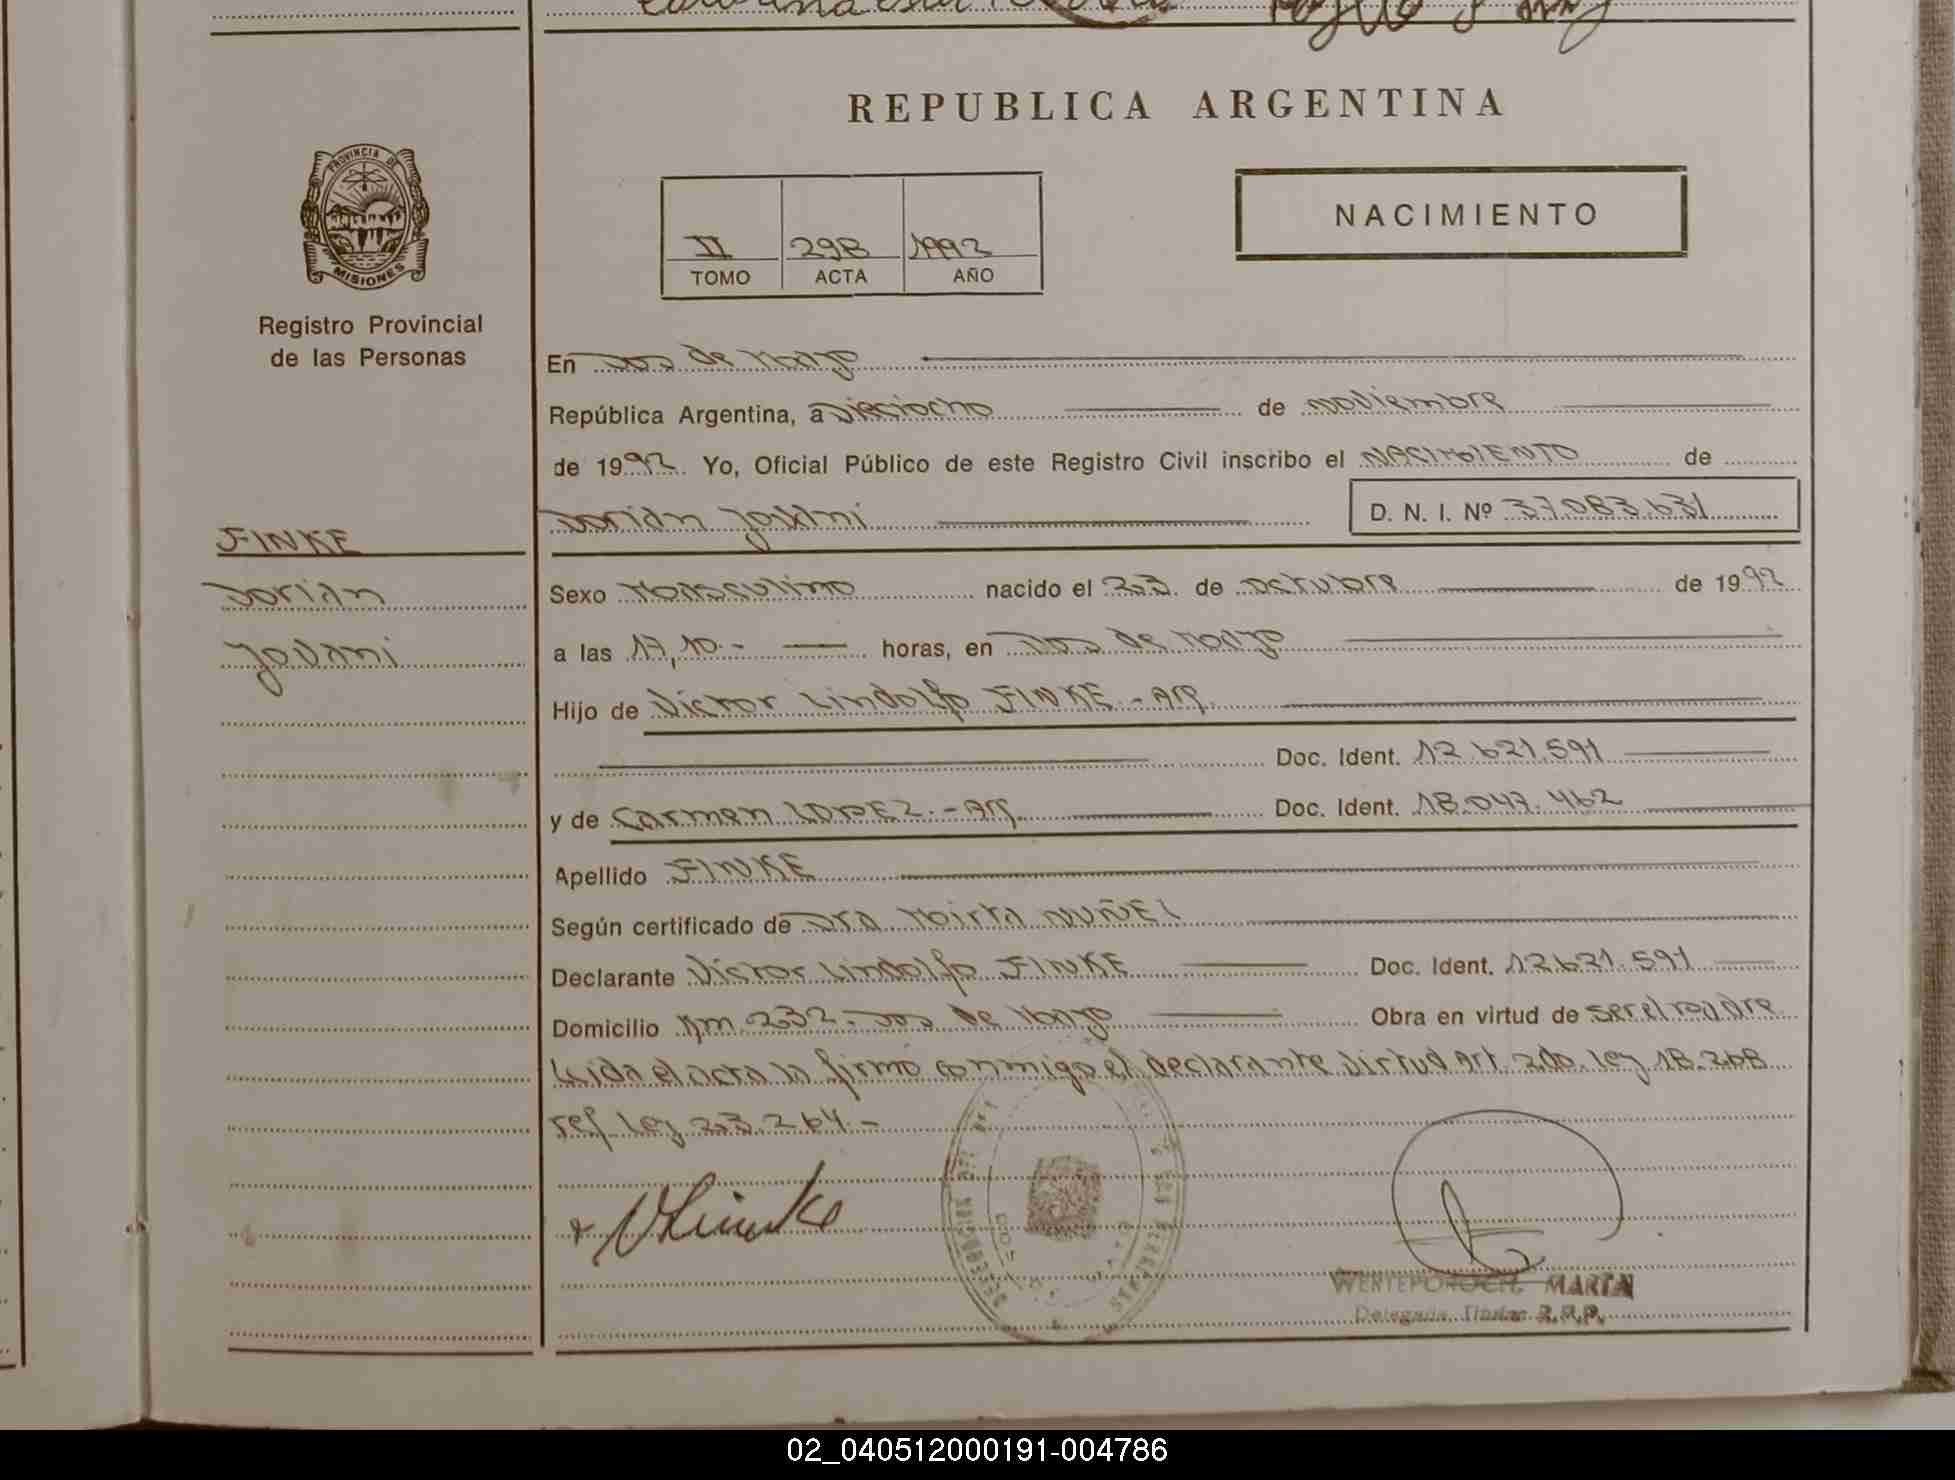 REPUBLICA ARGENTINA
PROVINCIA DE
MISIONES
Registro Provincial
de las Personas
II 298 1992
TOMO ACTA AÑO
NACIMIENTO
En Dos de Mayo
República Argentina, a Dieciocho de noviembre
de 1992. Yo, Oficial Público de este Registro Civil inscribo el NACIMIENTO de
Dorian Jovani D. N. I. Nº 37.083.631
FINKE
Dorian
Jovani
Sexo Masculino nacido el 23 de octubre de 1992
a las 17,10.- horas, en Dos de Mayo
Hijo de Victor Lindolfo FINKE.- Arg.
Doc. Ident. 12.621.591
y de Carmen LOPEZ.- Arg. Doc. Ident. 18.047.462
Apellido FINKE
Según certificado de Dra Mirta NUÑEZ
Declarante Victor Lindolfo FINKE Doc. Ident. 12.621.591
Domicilio Km 232. Dos de Mayo Obra en virtud de ser el padre
Leida el acta la firmó conmigo el declarante virtud Art. 2do. Ley 18.268
ref. Ley 23.264.-
MARTA
Delegada Titular R.P.P.
02_040512000191-004786